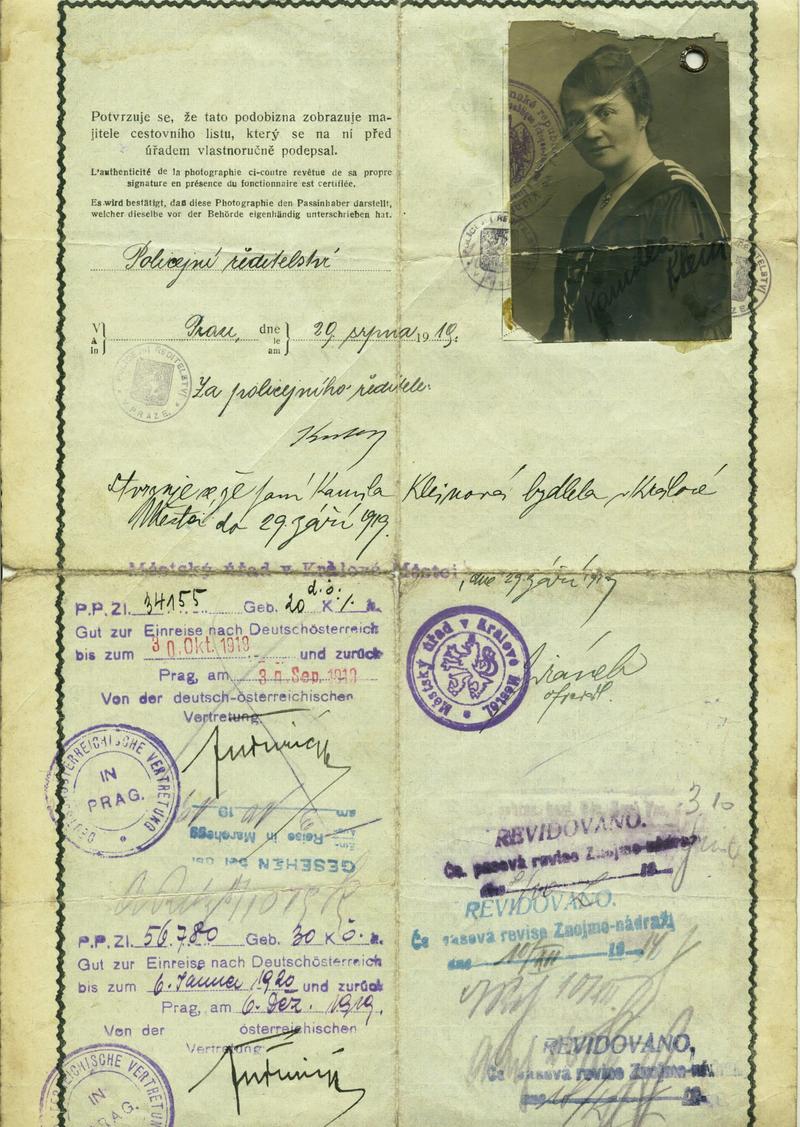 Potvrzuje se, že tato podobizna zobrazuje ma-
jitele cestovního listu, který se na ní před
úřadem vlastnoručně podepsal.
L'authenticité de la photographie ci-contre revêtue de sa propre
signature en présence du fonctionnaire est certifiée.
Es wird bestätigt, daß diese Photographie den Passinhaber darstellt,
welcher dieselbe vor der Behörde eigenhändig unterschrieben hat.
Kamila Klein
Policejní ředitelství
V
À
In
Praze, dne
le
am
29 srpna 1919.
POLICEJNÍ ŘEDITELSTVÍ
PRAZE.
Za policejního ředitele:
že paní Kamila Kleinová bydlela v Králové
Městci do 29. září 1919.
Městský úřad v Králové Městci, dne 29 září 1919
P.P. Zl. 34155 Geb. 20 K
Gut zur Einreise nach Deutschösterreich
bis zum 30. Okt. 1919 und zurück
Prag, am 30. Sep. 1919
Von der deutsch-österreichischen
Vertretung:
Městský úřad v Králové Městci
DEUTSCHÖSTERREICHISCHE VERTRETUNG
IN
PRAG.
am 19
Reise in Marchegg
GESEHEN bei der
REVIDOVANO.
Čs. pasová revise Znojmo-nádraží
dne 19
REVIDOVANO.
Čs pasová revise Znojmo-nádraží
dne 10/XII 19 19
P.P. Zl. 56.780 Geb. 30 K ö.
Gut zur Einreise nach Deutschösterreich
bis zum 6. Jänner 1920 und zurück
Prag, am 6. Dez. 1919.
Von der österreichischen
Vertretung:
REVIDOVANO,
Čs pasová revise Znojmo-nádraží
dne 19
IN
PRAG.